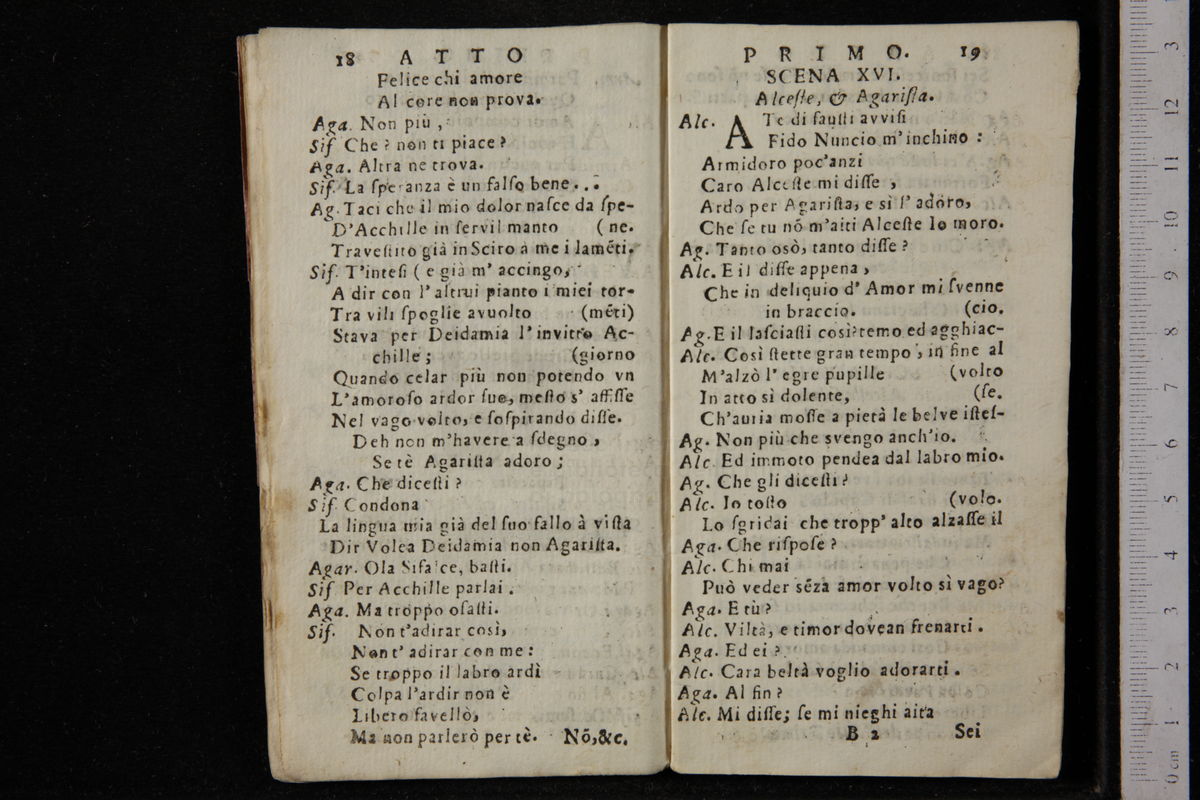 18 ATTO
Felice chi amore
Al core non prova.
Aga. Non più,
Sif. Che? non ti piace?
Aga. Altra ne trova.
Sif. La ſperanza è un falſo bene...
Ag. Taci che il mio dolor naſce da ſpe-
D'Acchille in ſervil manto (ne.
Traveſtito già in Sciro a me i lamẽti.
Sif. T'inteſi (e già m' accingo,
A dir con l'altrui pianto i miei tor-
Tra vili ſpoglie avuolto (mẽti)
Stava per Deidamia l'invitto Ac-
chille; (giorno
Quando celar più non potendo vn
L'amoroſo ardor ſuo, meſto s' affiſſe
Nel vago volto, e ſoſpirando diſſe.
Deh non m'havere a ſdegno,
Se tè Agariſta adoro;
Aga. Che diceſti?
Sif. Condona
La lingua mia già del ſuo fallo à viſta
Dir Volea Deidamia non Agariſta.
Agar. Ola Sifalce, baſti.
Sif Per Acchille parlai.
Aga. Ma troppo oſaſti.
Sif. Non t'adirar così,
Non t' adirar con me:
Se troppo il labro ardì
Colpa l'ardir non è
Libero favellò,
Ma non parlerò per tè. Nõ,&c.
PRIMO. 19
SCENA XVI.
Alceſte, & Agariſta.
Alc. A Te di fauſti avviſi
Fido Nuncio m'inchino:
Armidoro poc'anzi
Caro Alceſte mi diſſe,
Ardo per Agariſta, e sì l' adoro,
Che ſe tu nõ m'aiti Alceſte Io moro.
Ag. Tanto osò, tanto diſſe?
Alc. E il diſſe appena,
Che in deliquio d' Amor mi ſvenne
in braccio. (cio.
Ag. E il laſciaſti così? temo ed agghiac-
Alc. Così ſtette gran tempo, in fine al
M'alzò l' egre pupille (volto
In atto sì dolente, (ſe.
Ch'auria moſſe a pietà le belve iſteſ-
Ag. Non più che svengo anch'io.
Alc. Ed immoto pendea dal labro mio.
Ag. Che gli diceſti?
Alc. Io toſto (volo.
Lo ſgridai che tropp' alto alzaſſe il
Aga. Che riſpoſe?
Alc. Chi mai
Può veder sẽza amor volto sì vago?
Aga. E tù?
Alc. Viltà, e timor dovean frenarti.
Aga. Ed ei?
Alc. Cara beltà voglio adorarti.
Aga. Al fin?
Alc. Mi diſſe; ſe mi nieghi aita
B 2 Sei
3
12
11
10
9
8
7
6
5
4
3
2
1
0 cm